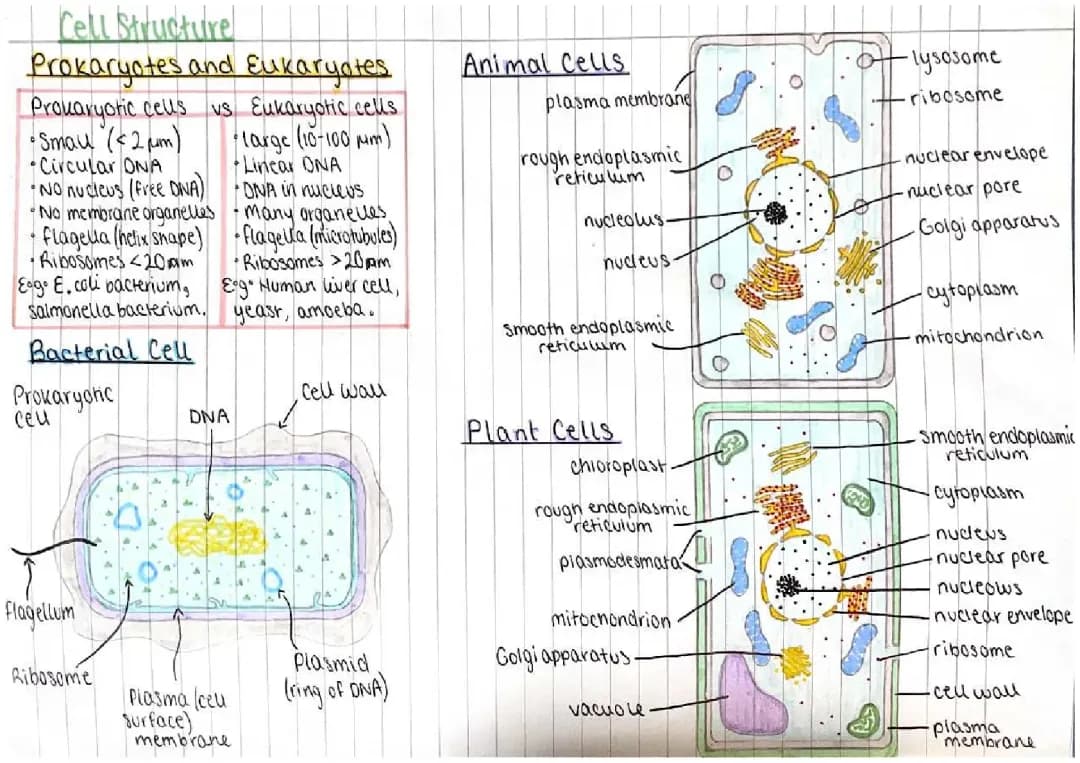 Cell Structure
Prokaryotes and Eukaryotes
Prokaryotic cells vs Eukaryotic cells
• Small (<2 µm)
• Circular DNA
• No nucleus (free DNA)
• No membrane organelles
• Flagella (helix shape)
• Ribosomes <20nm
E.g. E. coli bacterium,
salmonella bacterium.
• large (10-100 µm)
• Linear DNA
• DNA in nucleus
• Many organelles
• Flagella (microtubules)
• Ribosomes >20nm
E.g. Human liver cell,
yeast, amoeba.
Bacterial Cell
Prokaryotic
cell
DNA
Cell wall
Flagellum
Ribosome
Plasma (cell
surface)
membrane
Plasmid
(ring of DNA)
Animal Cells
plasma membrane
rough endoplasmic
reticulum
nucleolus
nucleus
smooth endoplasmic
reticulum
lysosome
ribosome
nuclear envelope
nuclear pore
Golgi apparatus
cytoplasm
mitochondrion
Plant Cells
chloroplast
rough endoplasmic
reticulum
plasmodesmata
mitochondrion
Golgi apparatus
vacuole
smooth endoplasmic
reticulum
cytoplasm
nucleus
nuclear pore
nucleolus
nuclear envelope
ribosome
cell wall
plasma
membrane